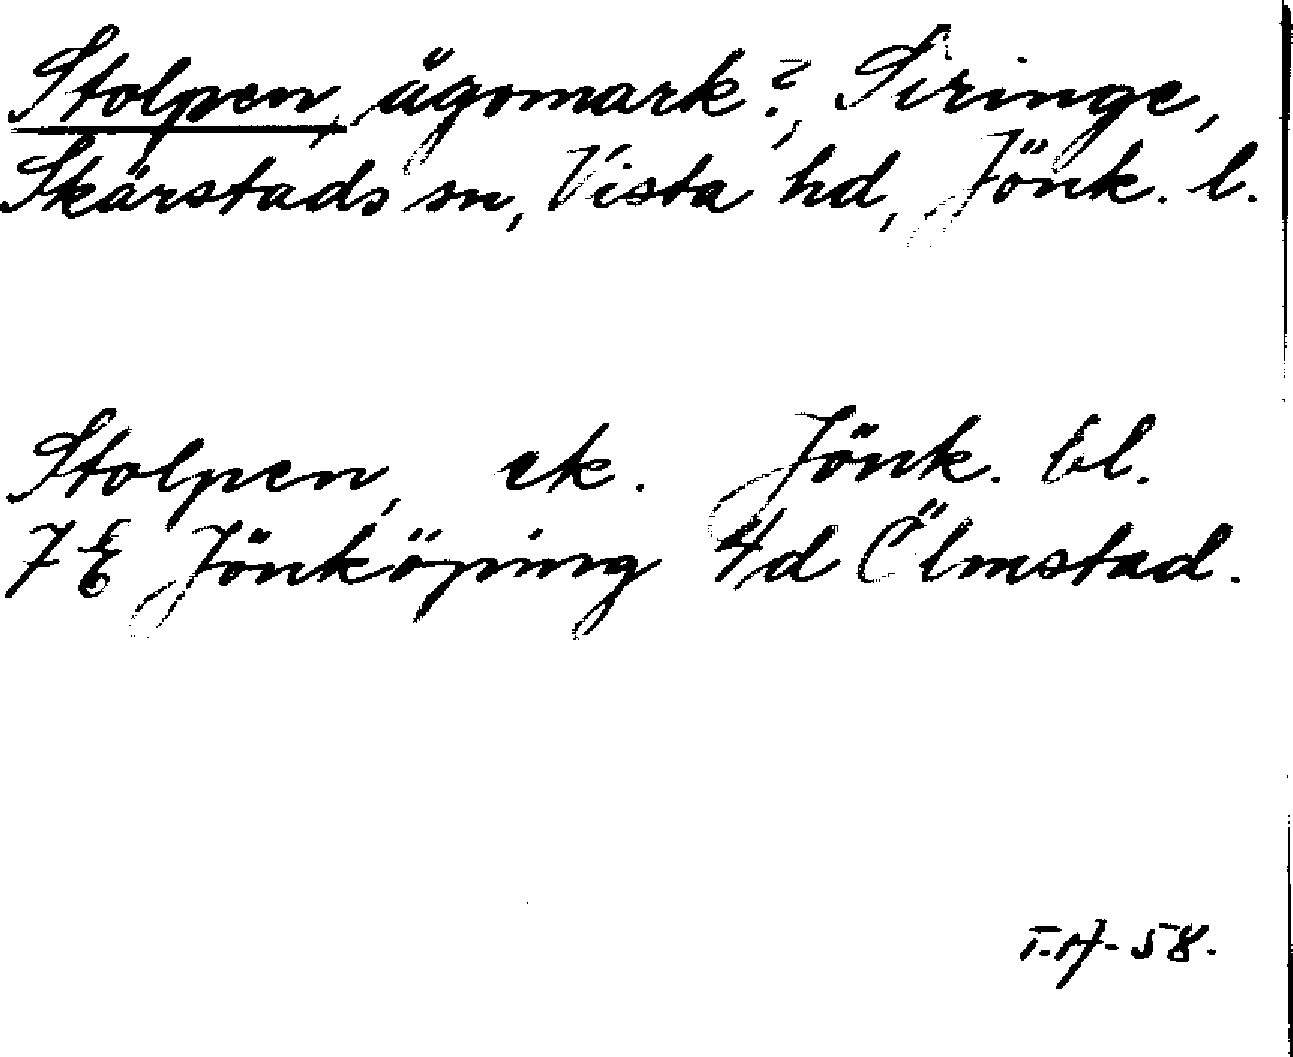 Stolpen, ägomark?, Siringe,
Skärstads sn, Vista hd, Jönk. l.
Stolpen, ek. Jönk. bl.
7E Jönköping 4d Ölmstad.
58.